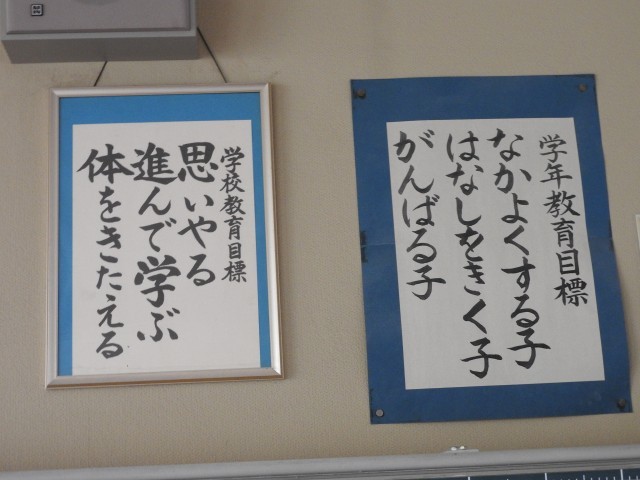 学校教育目標
思いやる
進んで学ぶ
体をきたえる
学年教育目標
なかよくする子
はなしをきく子
がんばる子